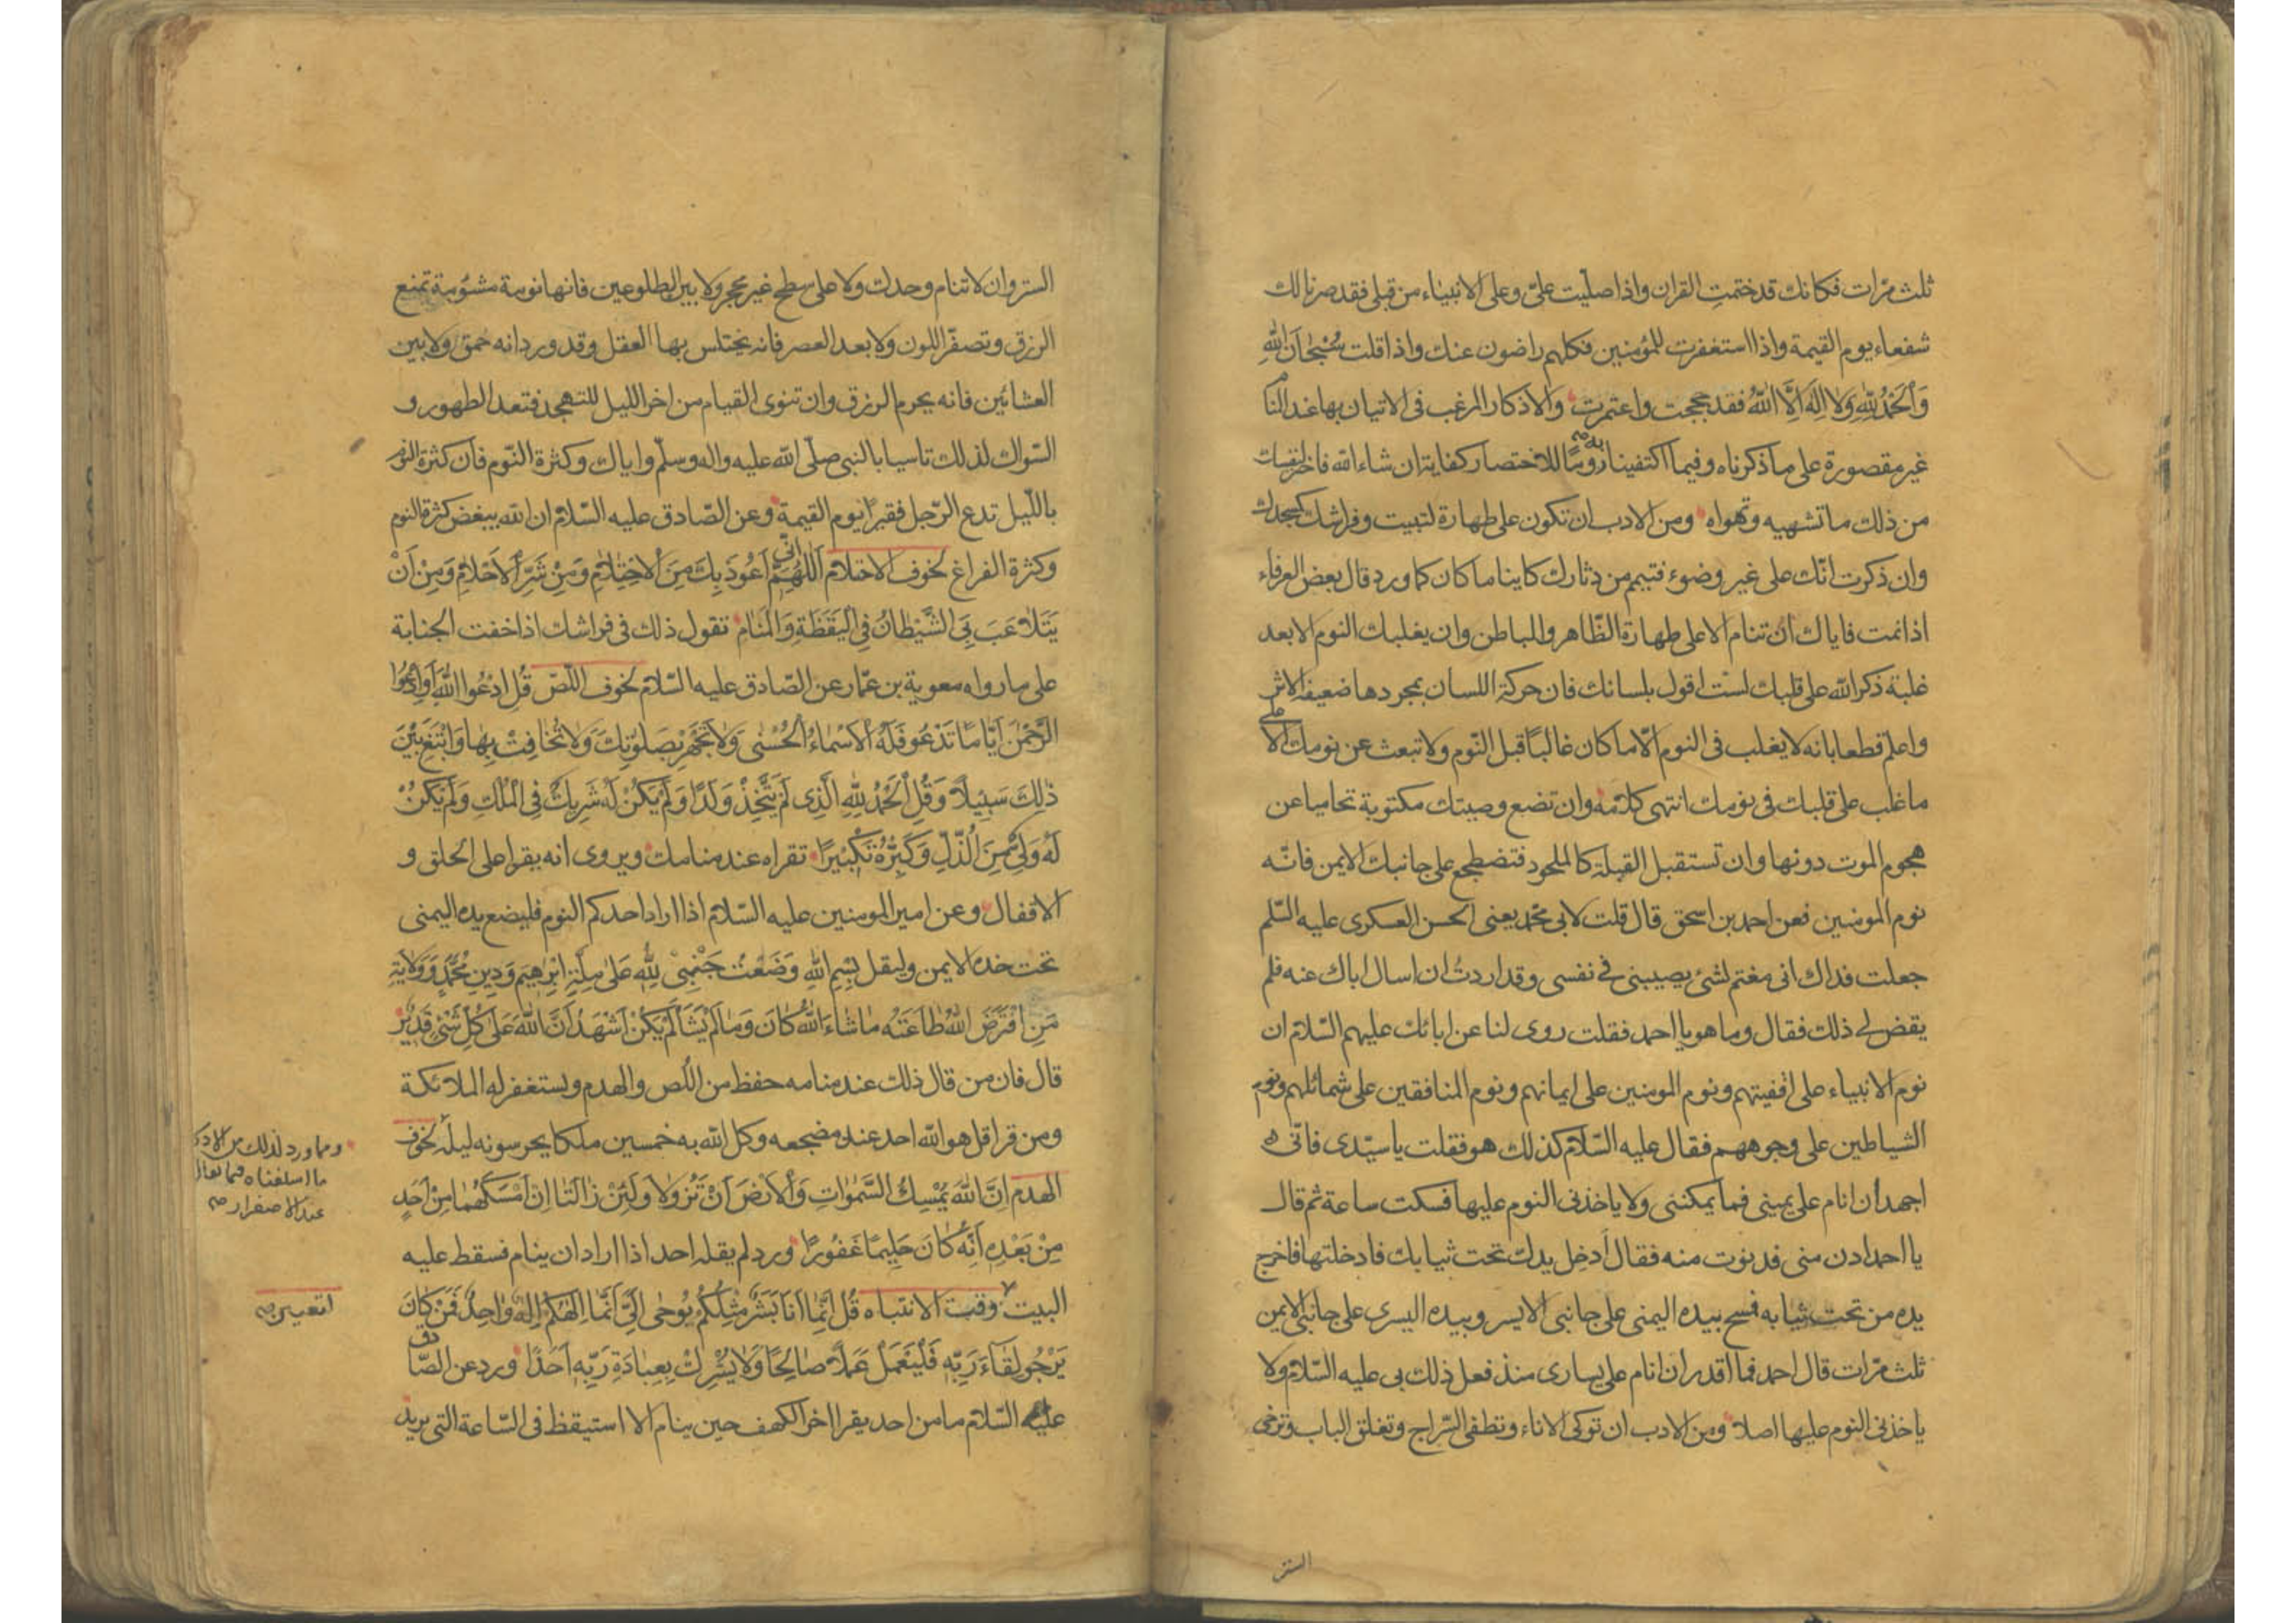 ثلث مرّات فكانك قد ختمت القران واذا صلّيت علىّ وعلى الانبياء من قبلى فقد صرنا لك
شفعاء يوم القيمة واذا استغفرت للمؤمنين فكلهم راضون عنك واذا قلت سُبْحَانَ اللهِ
وَالْحَمْدُ لِلّٰهِ وَلَا اِلٰهَ اِلَّا اللهُ فقد حججت واعتمرت والاذكار المرغب فى الاتيان بها عند المنا
غير مقصورة على ما ذكرناه وفيما اكتفينا به روما للاختصار كفاية ان شاء الله فاختر لنفسك
من ذلك ما تشهيه وتهواه ومن الادب ان تكون على طهارة لتبيت وفراشك كمسجدك
وان ذكرت انّك على غير وضوء فتيمم من دثارك كاينا ما كان كما ورد قال بعض العرفاء
اذا نمت فاياك ان تنام الا على طهارة الظّاهر والباطن وان يغلبك النوم الا بعد
غلبة ذكر الله على قلبك لست اقول بلسانك فان حركة اللسان بمجردها ضعيفة الاثر
واعلم قطعا بانه لا يغلب فى النوم الّا ما كان غالبًا قبل النّوم ولا تبعث عن نومك الا على
ما غلب على قلبك فى نومك انتهى كلامه وان تضع وصيتك مكتوبة تحاميا عن
هجوم الموت دونها وان تستقبل القبلة كالملحود فتضطجع على جانبك الايمن فانّه
نوم المومنين فعن احمد بن اسحق قال قلت لابى محمّد يعنى الحسن العسكرى عليه السّلم
جعلت فداك انى مغتم لشئ يصيبنى فى نفسى وقد اردتُ ان اسال اباك عنه فلم
يقض لى ذلك فقال وما هو يا احمد فقلت روى لنا عن ابائك عليهم السّلام ان
نوم الانبياء على اقفيتهم ونوم المومنين على ايمانهم ونوم المنافقين على شمائلهم ونوم
الشياطين على وجوههم فقال عليه السّلام كذلك هو فقلت يا سيّدى فانّى
اجهد ان انام على يمينى فما يمكننى ولا ياخذنى النوم عليها فسكت ساعة ثم قال
يا احمد ادن منى فدنوت منه فقال اَدخِل يدك تحت ثيابك فادخلتها فاخرج
يده من تحت ثيابه فمسح بيده اليمنى على جانبى الايسر وبيده اليسرى على جانبى الايمن
ثلث مرّات قال احمد فما اقدر ان انام على يسارى منذ فعل ذلك بى عليه السّلام ولا
ياخذنى النوم عليها اصلا ومن الادب ان توكى الاناء وتطفى السّراج وتغلق الباب وترخى
الستر
الستر وان لا تنام وحدك ولا على سطح غير محجر ولا بين الطلوعين فانها نومة مشئومة تمنع
الرزق وتصفّر اللون ولا بعد العصر فانه يختلس بها العقل وقد ورد انه حمق ولا بين
العشائين فانه يحرم الرزق وان تنوى القيام من اخر الليل للتهجد فتعد الطهور و
السّواك لذلك تاسيا بالنبى صلّى الله عليه واله وسلّم واياك وكثرة النّوم فان كثرة النوم
بالليل تدع الرّجل فقيرًا يوم القيمة وعن الصّادق عليه السّلام ان الله يبغض كثرة النوم
وكثرة الفراغ لخوف الاحتلام اَللّٰهُمَّ اِنّى اَعُوذُ بِكَ مِنَ الْاِحْتِلَامِ وَمِنْ شَرِّ الْاَحْلَامِ وَمِنْ اَنْ
يَتَلَاعَبَ بِىَ الشَّيْطَانُ فِى الْيَقَظَةِ وَالْمَنَامِ تقول ذلك فى فراشك اذا خفت الجنابة
على ما رواه معوية بن عمّار عن الصّادق عليه السّلام لخوف اللّصّ قُلِ ادْعُوا اللهَ اَوِ ادْعُوا
الرَّحْمٰنَ اَيًّا مَا تَدْعُو فَلَهُ الْاَسْمَاءُ الْحُسْنٰى وَلَا تَجْهَرْ بِصَلٰوتِكَ وَلَا تُخَافِتْ بِهَا وَابْتَغِ بَيْنَ
ذٰلِكَ سَبِيلًا وَقُلِ الْحَمْدُ لِلّٰهِ الَّذِى لَمْ يَتَّخِذْ وَلَدًا وَلَمْ يَكُنْ لَهُ شَرِيكٌ فِى الْمُلْكِ وَلَمْ يَكُنْ
لَهُ وَلِىٌّ مِنَ الذُّلِّ وَكَبِّرْهُ تَكْبِيرًا تقراه عند منامك ويروى انه يقرا على الحلق و
الاقفال وعن امير المومنين عليه السّلام اذا اراد احدكم النوم فليضع يده اليمنى
تحت خده الايمن وليقل بِسْمِ اللهِ وَضَعْتُ جَنْبِىْ لِلّٰهِ عَلٰى مِلَّةِ اِبْرٰهِيمَ وَدِينِ مُحَمَّدٍ وَوَلَايَةِ
مَنِ افْتَرَضَ اللهُ طَاعَتَهُ مَا شَاءَ اللهُ كَانَ وَمَا لَمْ يَشَأْ لَمْ يَكُنْ اَشْهَدُ اَنَّ اللهَ عَلٰى كُلِّ شَىْءٍ قَدِيرٌ
قال فان من قال ذلك عند منامه حفظ من اللّص والهدم ويستغفر له الملائكة
ومن قرا قل هو الله احد عند مضجعه وكل الله به خمسين ملكا يحرسونه ليلته لخوف
الهدم اِنَّ اللهَ يُمْسِكُ السَّمٰوَاتِ وَالْاَرْضَ اَنْ تَزُولَا وَلَئِنْ زَالَتَا اِنْ اَمْسَكَهُمَا مِنْ اَحَدٍ
مِنْ بَعْدِهِ اِنَّهُ كَانَ حَلِيمًا غَفُورًا ورد لم يقله احد اذا اراد ان ينام فسقط عليه
البيت وقت الانتباه قُلْ اِنَّمَا اَنَا بَشَرٌ مِثْلُكُمْ يُوحٰى اِلَىَّ اَنَّمَا اِلٰهُكُمْ اِلٰهٌ وَاحِدٌ فَمَنْ كَانَ
يَرْجُو لِقَاءَ رَبِّهِ فَلْيَعْمَلْ عَمَلًا صَالِحًا وَلَا يُشْرِكْ بِعِبَادَةِ رَبِّهِ اَحَدًا ورد عن الصّادق
عليه السّلام ما من احد يقرا اخر الكهف حين ينام الا استيقظ فى السّاعة التى يريد
ومما ورد لذلك من
ما اسلفناه
عند الاصفرار صح